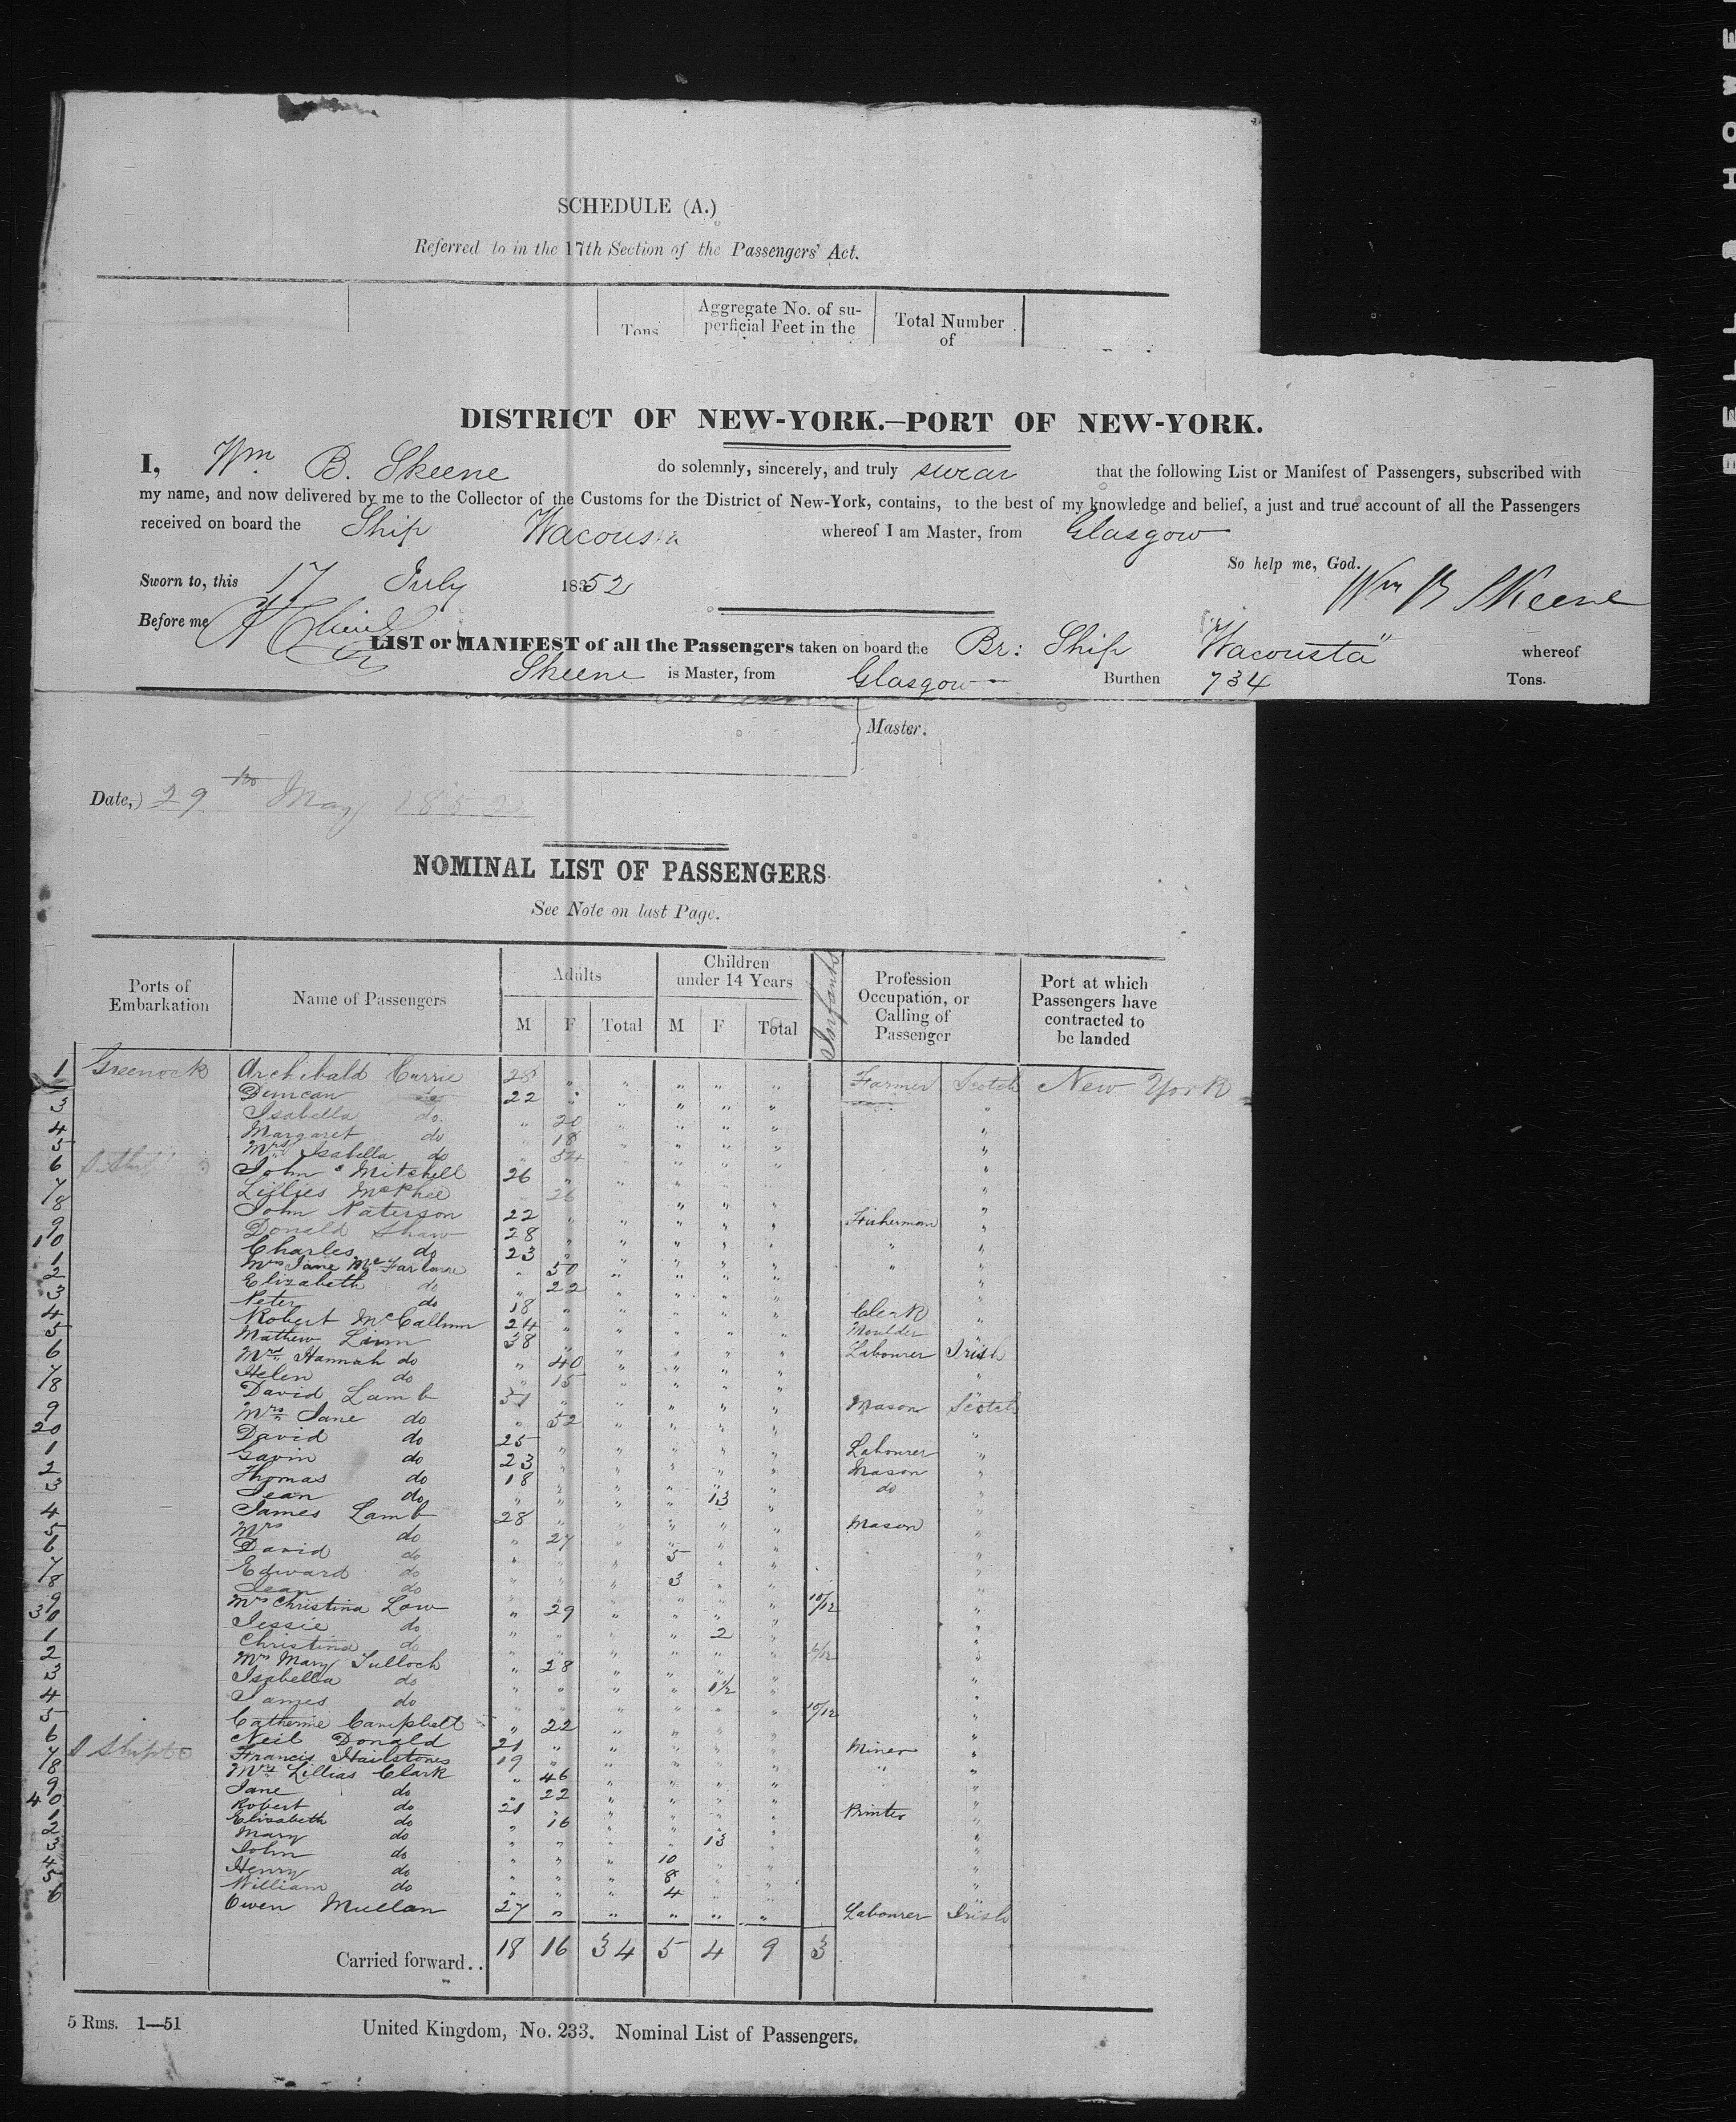 SCHEDULE (A.)
Referred to in the 17th Section of the Passengers' Act.
Tons Aggregate No. of su- Total Number
perficial Feet in the of
DISTRICT OF NEW-YORK.—PORT OF NEW-YORK.
I, Wm B. Skeene do solemnly, sincerely, and truly swear that the following List or Manifest of Passengers, subscribed with
my name, and now delivered by me to the Collector of the Customs for the District of New-York, contains, to the best of my knowledge and belief, a just and true account of all the Passengers
received on board the Ship Wacousta whereof I am Master, from Glasgow
So help me, God.
Sworn to, this 17 July 1852 Wm B Skeene
Before me
LIST or MANIFEST of all the Passengers taken on board the Br: Ship "Wacousta" whereof
Skeene is Master, from Glasgow Burthen 734 Tons.
Master.
Date, 29th May 1852
NOMINAL LIST OF PASSENGERS.
See Note on last Page.
Ports of Embarkation Name of Passengers Adults Children under 14 Years Infants Profession Occupation, or Calling of Passenger Port at which Passengers have contracted to be landed
M F Total M F Total
1 Greenock Archibald Currie 28 " " " " " Farmer Scotch New York
Duncan 22 " " " " "
3 Isabella do " 20 " " " " "
4 Margaret do " 18 " " " " "
5 Mrs Isabella do " 54 " " " " "
6 John Mitchell 26 " " " " " "
7 Lillies McPhee " 26 " " " " "
8 John Paterson 22 " " " " " Fisherman "
9 Donald Shaw 28 " " " " " " "
10 Charles do 23 " " " " " " "
1 Mrs Jane McFarlane " 50 " " " " "
2 Elizabeth do " 22 " " " " "
3 Peter do 18 " " " " " Clerk "
4 Robert McCallum 24 " " " " " Moulder "
5 Mathew Linn 38 " " " " " Labourer Irish
6 Mrs Hannah do " 40 " " " " "
7 Helen do " 15 " " " " "
8 David Lamb 51 " " " " " Mason Scotch
9 Mrs Jane do " 52 " " " " "
20 David do 25 " " " " " Labourer "
1 Gavin do 23 " " " " " Mason "
2 Thomas do 18 " " " " " do "
3 Jean do " " " " 13 " "
4 James Lamb 28 " " " " " Mason "
5 Mrs do " 27 " " " " "
6 David do " " " 5 " " "
7 Edward do " " " 3 " " "
8 Jean do " " " " " " 10/12 "
9 Mrs Christina Low " 29 " " " " "
30 Jessie do " " " " 2 " "
1 Christina do " " " " " " 6/12 "
2 Mrs Mary Tulloch " 28 " " " " "
3 Isabella do " " " " 1½ " "
4 James do " " " " " " 10/12 "
5 Catherine Campbell " 22 " " " " "
6 Neil Donald 21 " " " " " Miner "
7 Francis Hailstones 19 " " " " " " "
8 Mrs Lillias Clark " 46 " " " " "
9 Jane do " 22 " " " " "
40 Robert do 21 " " " " " Printer "
1 Elizabeth do " 16 " " " " "
2 Mary do " " " " 13 " "
3 John do " " " 10 " " "
4 Henry do " " " 8 " " "
5 William do " " " 4 " " "
6 Owen Mullan 27 " " " " " Labourer Irish
Carried forward.. 18 16 34 5 4 9 3
5 Rms. 1—51 United Kingdom, No. 233. Nominal List of Passengers.
BELL & HOWE